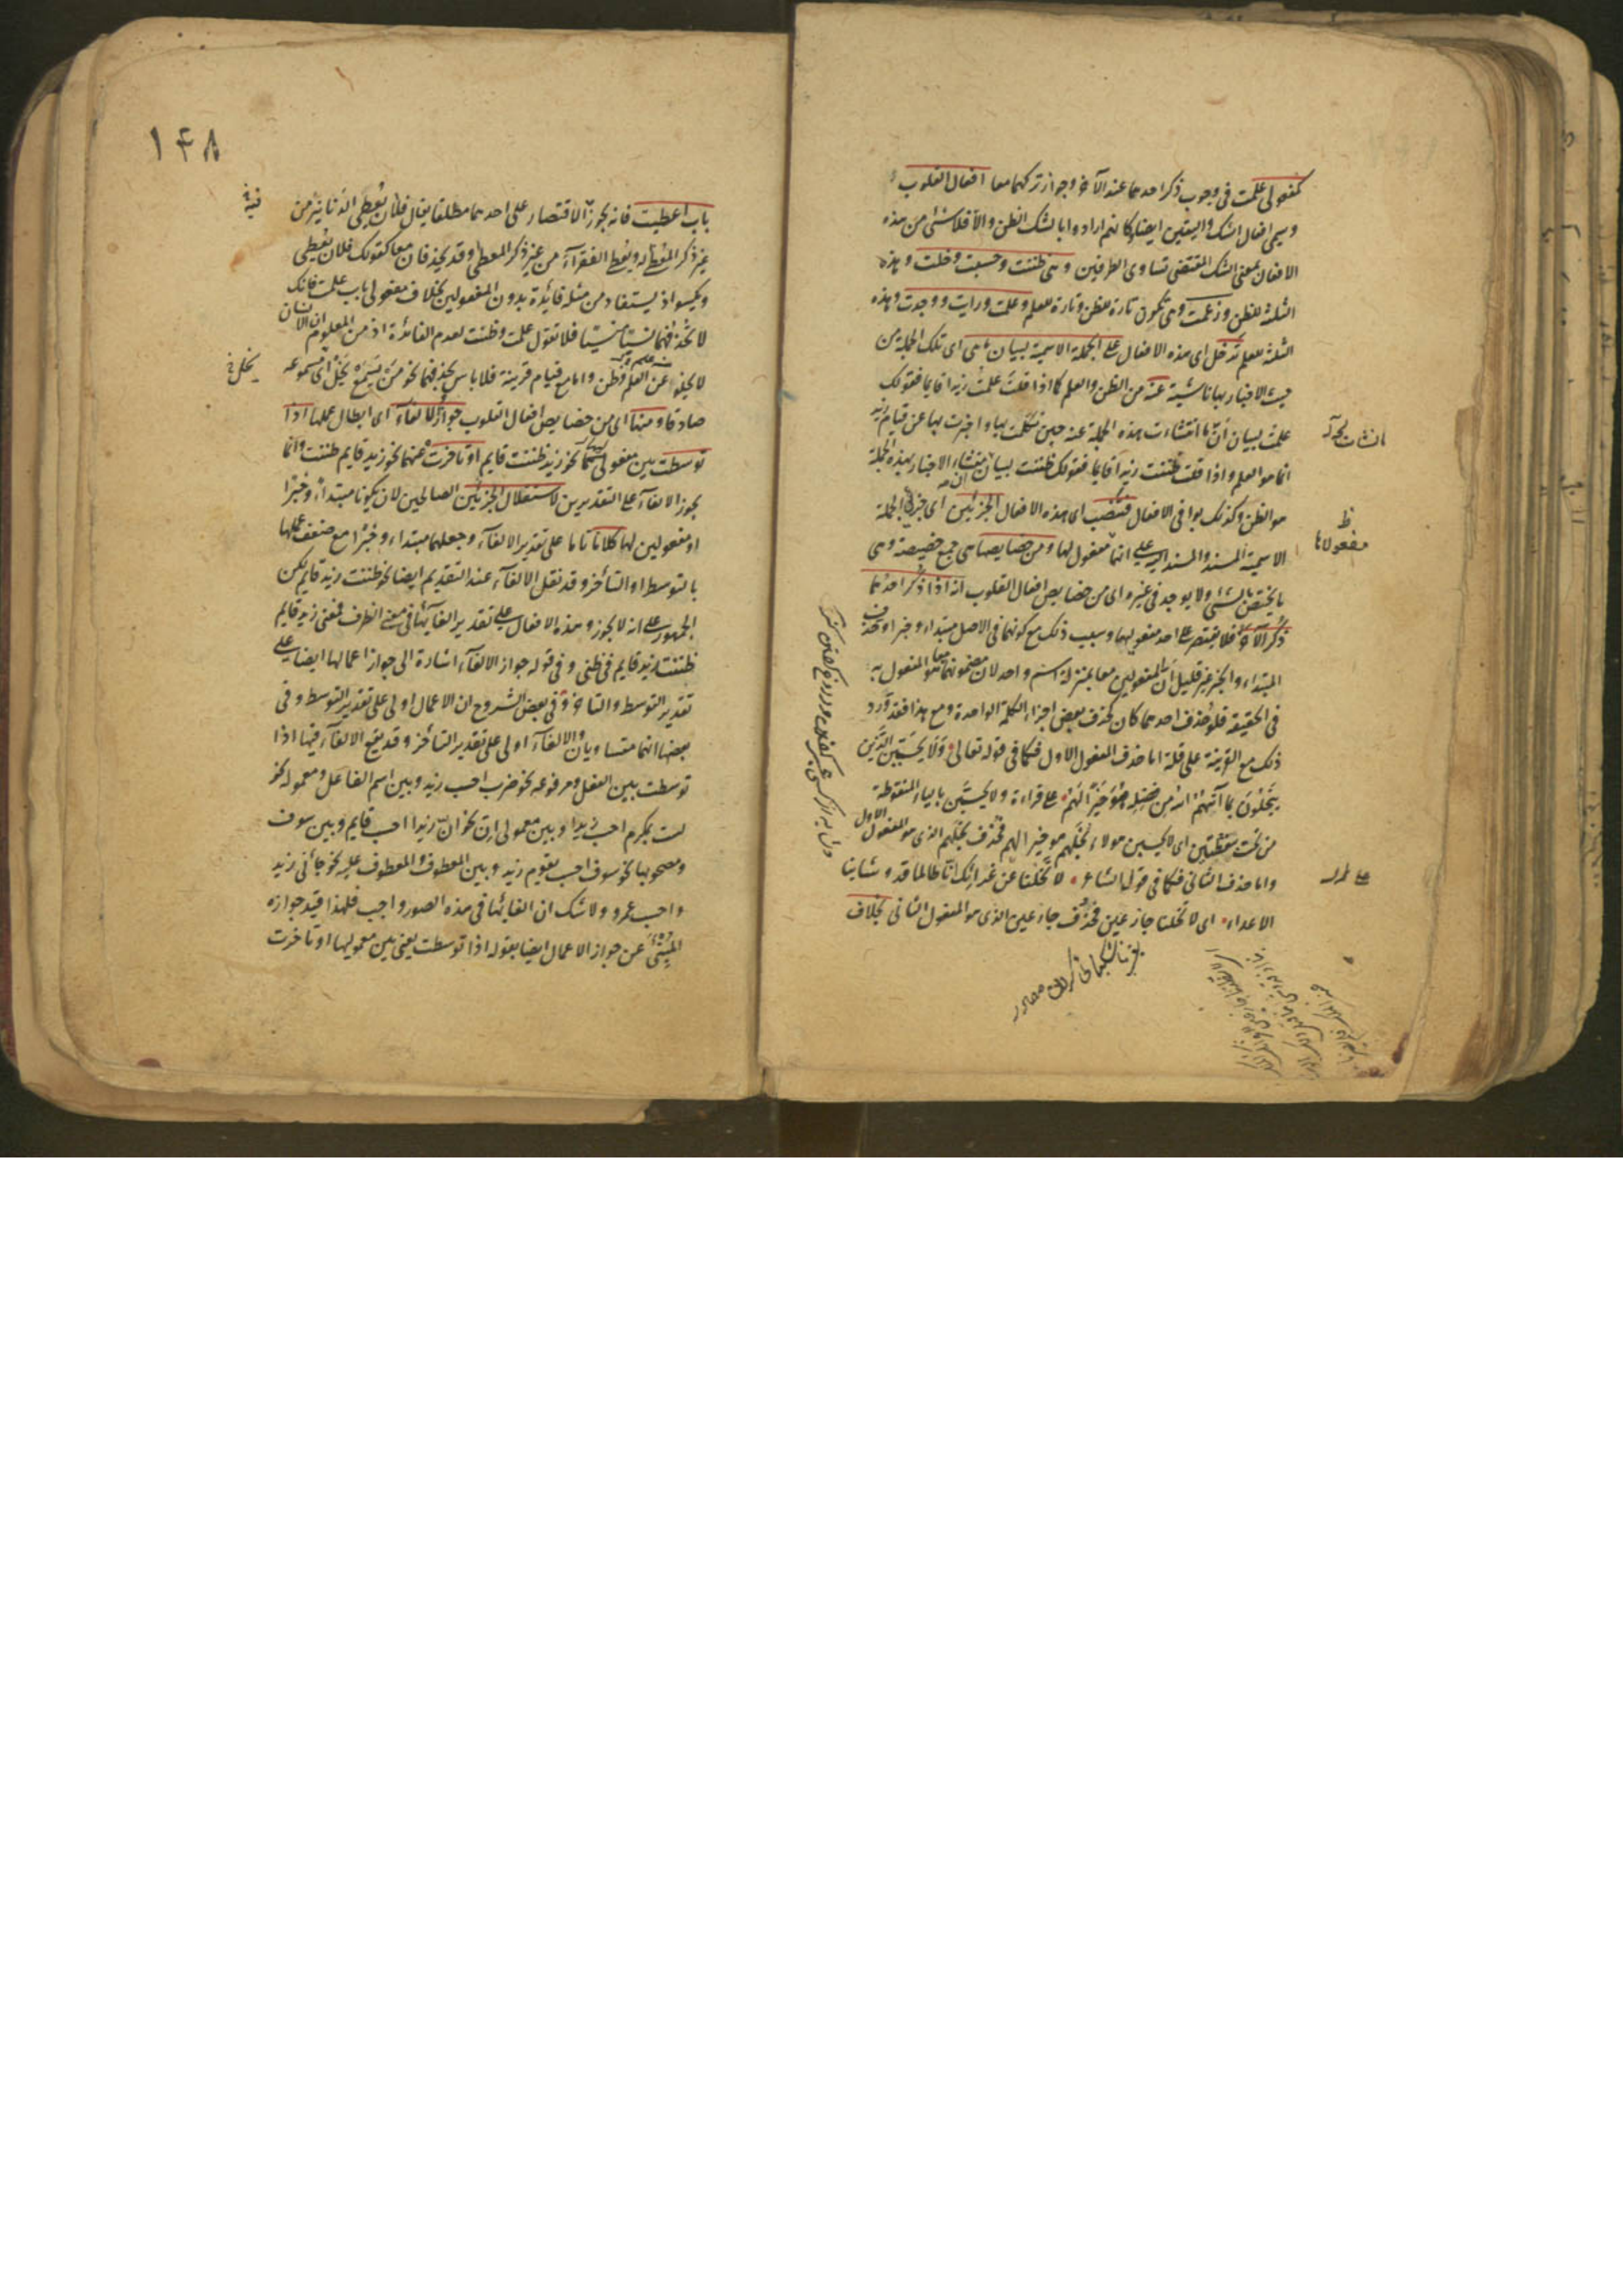 كمفعولى علمت فى وجوب ذكر احدهما عند الآخر وجواز تركهما معا افعال القلوب
وتسمى افعال الشك واليقين ايضا كانهم ارادوا بالشك الظن والا فلا شئ من هذه
الافعال بمعنى الشك المقتضى تساوى الطرفين وهى ظننت وحسبت وخلت وهذه
الثلثة للظن وزعمت وهى تكون تارة للظن وتارة للعلم وعلمت ورايت ووجدت وهذه
الثلثة للعلم تدخل اى هذه الافعال على الجملة الاسمية لبيان ما هى اى تلك الجملة من
حيث الاخبار بها ناشية عنه من الظن والعلم كما اذا قلت علمت زيدا قايما فقولك
علمت لبيان ان ما انتشاءت هذه الجملة عنه حين تكلمت بها واخبرت بها عن قيام زيد
انما هو العلم واذا قلت ظننت زيدا قايما فقولك ظننت لبيان ان منشاء الاخبار بهذه الجملة
هو الظن وكذلك بواقى الافعال فتنصب اى هذه الافعال الجزئين اى جزئى الجملة
الاسمية المسند والمسند اليه على انهما مفعول لها ومن خصايصها هى جمع خصيصة وهى
ما يختص بالشئ ولا يوجد فى غيره اى من خصايص افعال القلوب انه اذا ذكر احدهما
ذكر الآخر فلا يقتصر على احد مفعوليها وسبب ذلك مع كونهما فى الاصل مبتداء وخبرا وحذف
المبتداء والخبر غير قليل ان المفعولين معا بمنزلة اسم واحد لان مضمونهما معا هو المفعول به
فى الحقيقة فلو حذف احدهما كان كحذف بعض اجزاء الكلمة الواحدة ومع هذا فقد ورد
ذلك مع القرينة على قلة اما حذف المفعول الاول فكما فى قوله تعالى ولا يحسبن الذين
يبخلون بما آتيهم الله من فضله هو خيرا لهم على قراءة ولا يحسبن بالياء المنقوطة
من تحت بنقطتين اى لا يحسبن هولاء بخلهم هو خيرا لهم فحذف بخلهم الذى هو المفعول الاول
واما حذف الثانى فكما فى قول الشاعر لا تخلنا عن غرائك انا طالما قد وشابنا
الاعداء اى لا تخلنا جازعين فحذف جازعين الذى هو المفعول الثانى بخلاف
مفعولاها
١٤٨
باب اعطيت فانه يجوز الاقتصار على احدهما مطلقا يقال فلان يعطى الدنانير من
غير ذكر المعطى له ويعطى الفقراء من غير ذكر المعطى وقد يحذفان معا كقولك فلان يعطى
ويكسو اذ يستفاد من مثله فائدة بدون المفعولين بخلاف مفعولى باب علمت فانك
لا تحذفهما نسيا منسيا فلا تقول علمت وظننت لعدم الفائدة اذ من المعلوم ان الانسان
لا يخلو عن علم وظن واما مع قيام قرينة فلا باس بحذفهما نحو من يسمع يخل اى مسموعه
صادقا ومنها اى من خصايص افعال القلوب جواز الالغاء اى ابطال عملها اذا
توسطت بين مفعوليها نحو زيد ظننت قايم او تاخرت عنهما نحو زيد قايم ظننت وانما
يجوز الالغاء على التقديرين لاستقلال الجزئين الصالحين لان يكونا مبتداء وخبرا
او مفعولين لها كلاما تاما على تقدير الالغاء وجعلهما مبتداء وخبرا مع ضعف عملها
بالتوسط او التأخر وقد نقل الالغاء عند التقديم ايضا نحو ظننت زيد قايم لكن
الجمهور على انه لا يجوز وهذه الافعال على تقدير الغائها فى معنى الظرف فمعنى زيد قايم
ظننت زيد قايم فى ظنى وفى قوله جواز الالغاء اشارة الى جواز اعمالها ايضا على
تقدير التوسط والتاخر وفى بعض الشروح ان الاعمال اولى على تقدير التوسط وفى
بعضها انهما متساويان والالغاء اولى على تقدير التأخر وقد يقع الالغاء فيها اذا
توسطت بين الفعل ومرفوعه نحو ضرب احسب زيد وبين اسم الفاعل ومعموله نحو
لست بمكرم احسب زيدا وبين معمولى ان نحو ان زيدا احسب قايم وبين سوف
ومصحوبها نحو سوف احسب يقوم زيد وبين المعطوف والمعطوف عليه نحو جائنى زيد
واحسب عمرو ولا شك ان الغائها فى هذه الصور واجب فلهذا قيد جوازه
المنبئ عن جواز الاعمال ايضا بقوله اذا توسطت يعنى بين معموليها او تاخرت